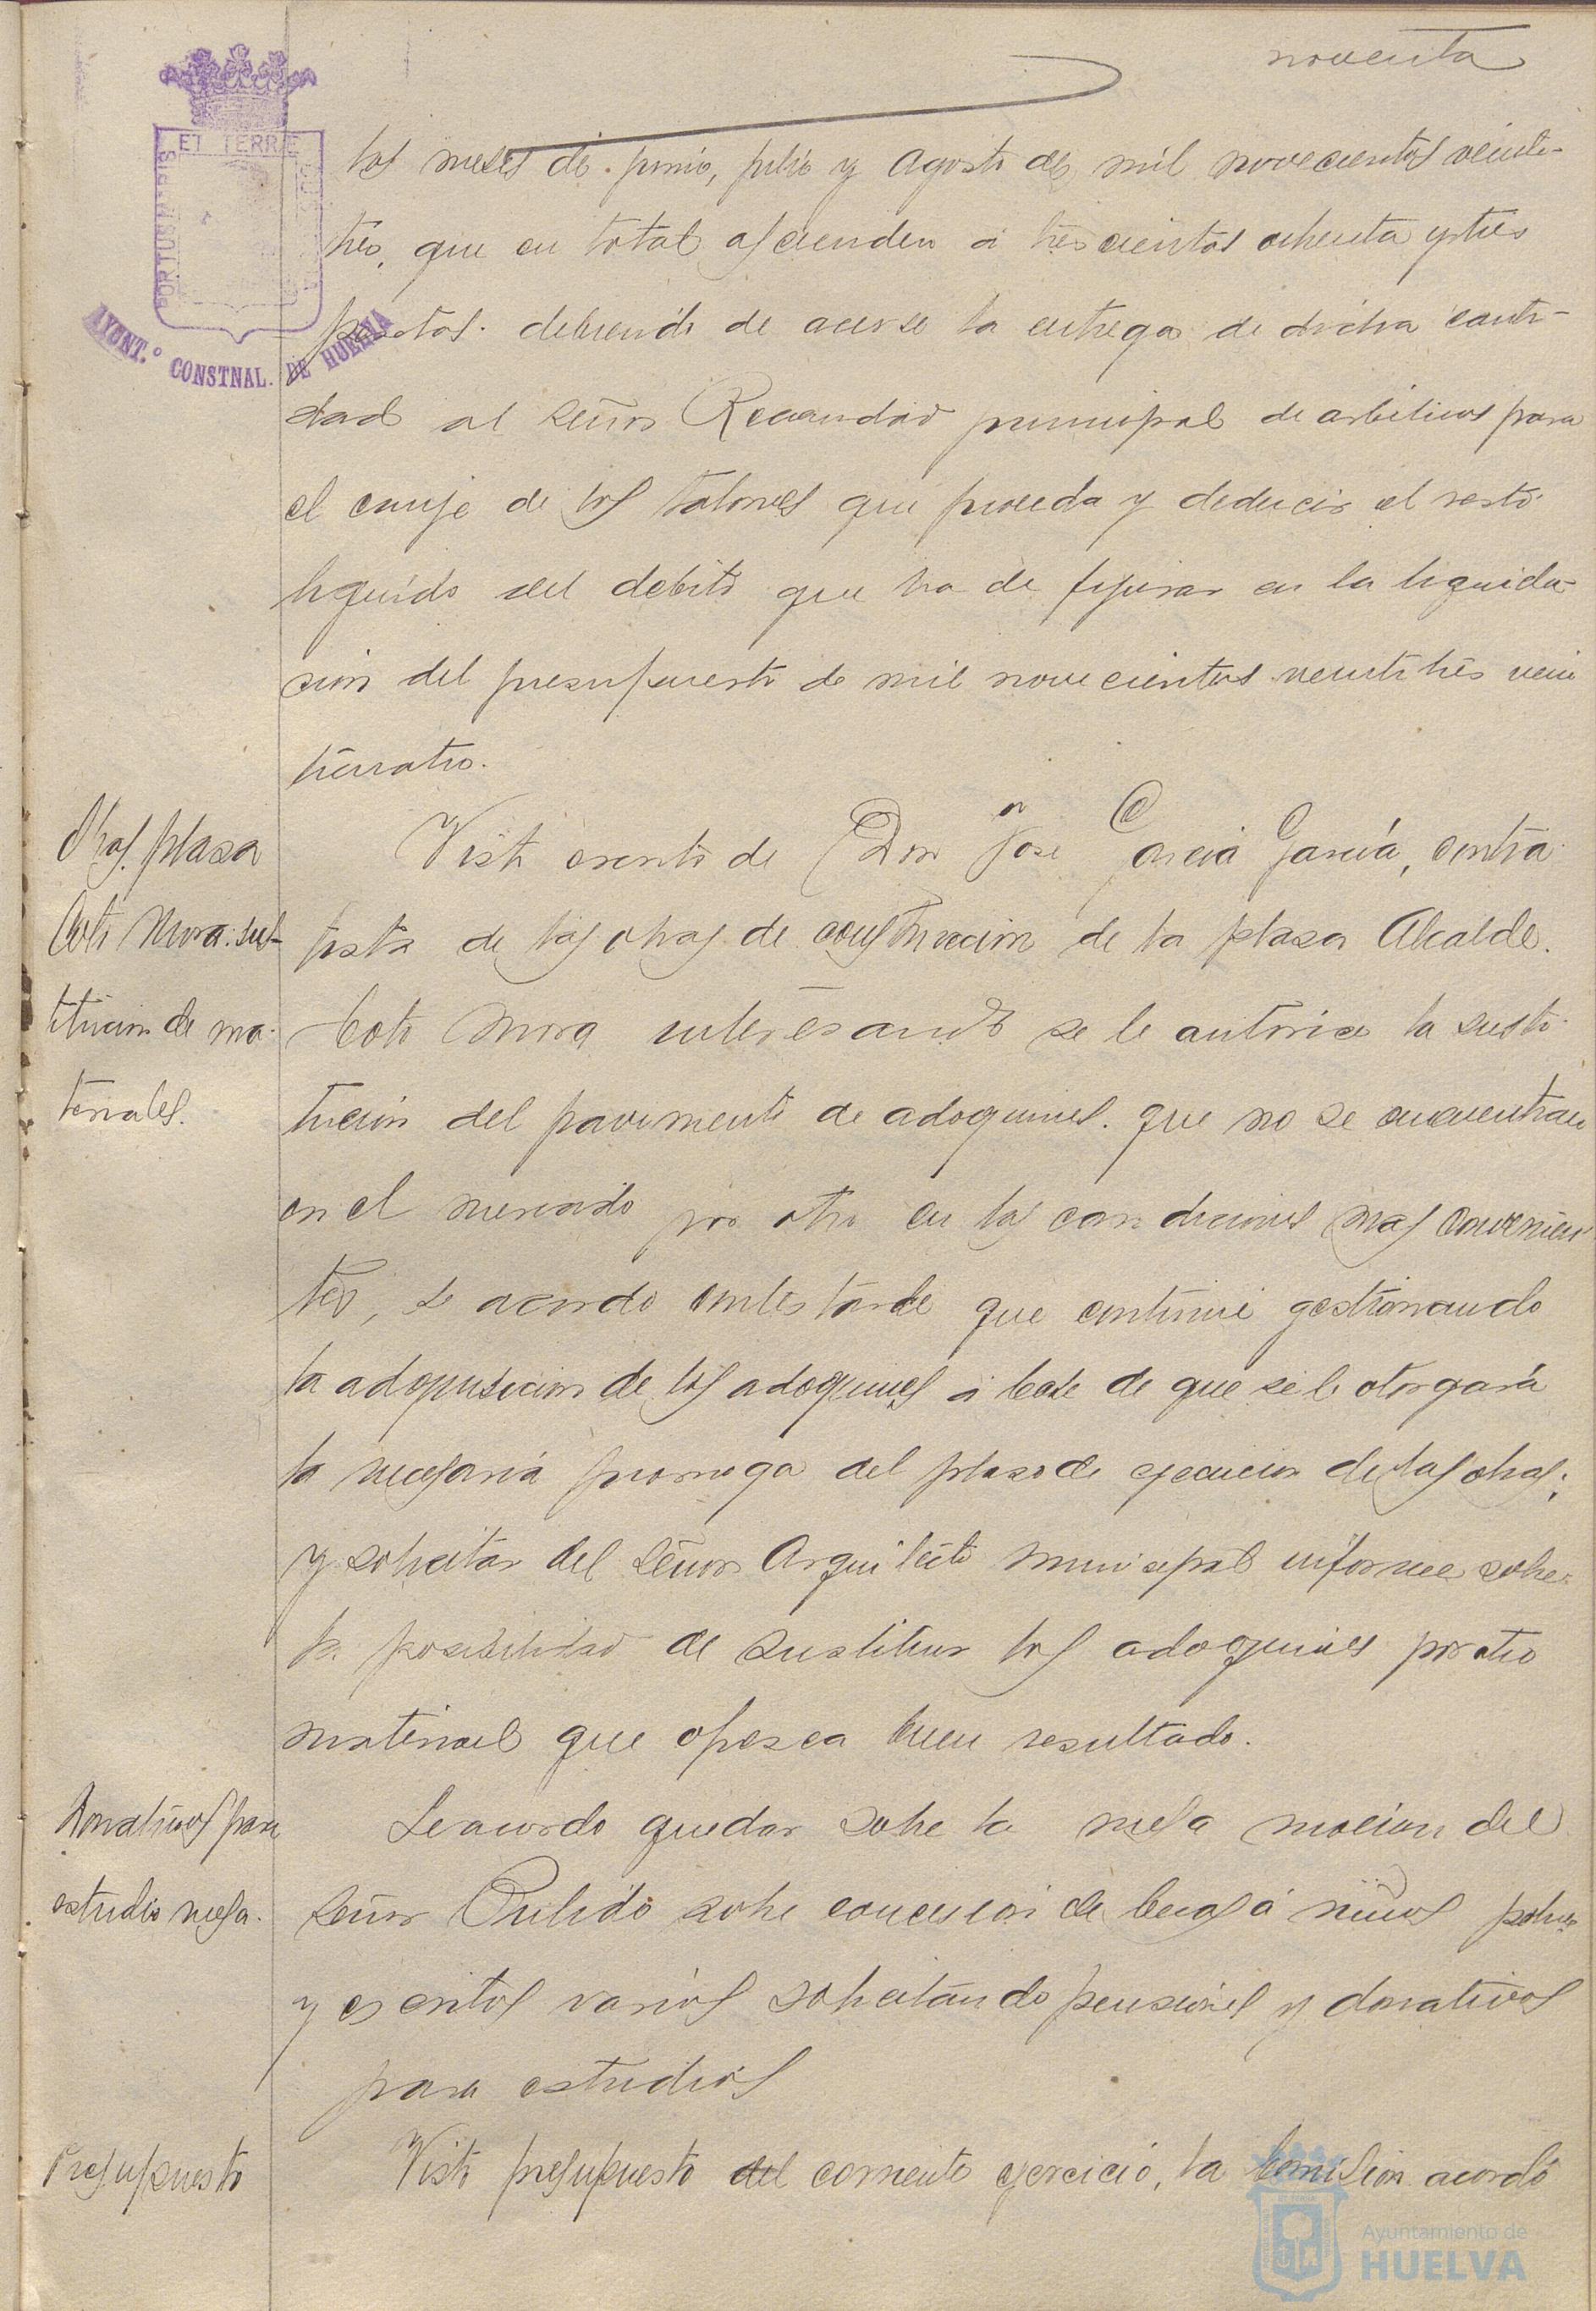 noventa
ET TERRÆ
PORTUS MARIS
CUSTODIA
AYUNT.º CONSTNAL. DE HUELVA
los meses de junio, julio y Agosto de mil novecientos veinti-
tres, que en total ascienden a trescientas ochenta y tres
pesetas. debiendo de acerse la entrega de dicha canti-
dad al señor Recaudador municipal de arbitrios para
el canje de los talones que proceda y deducir el resto
liquido del debito que ha de figurar en la liquida-
cion del presupuesto de mil novecientos veintitres vein
ticuatro.
Obras plaza
Coto Mora: sus-
titucion de ma-
teriales.
Visto escrito de Don José Garcia García, contra-
tista de las obras de construccion de la plaza Alcalde.
Coto Mora interesando se le autorice la susti-
tucion del pavimento de adoquines. que no se encuentran
en el mercado por otro en las condiciones mas convenien
tes, se acordo contestarle que continúe gestionando
la adquisicion de los adoquines a base de que se le otorgará
la necesaria prorroga del plazo de ejecucion de las obras;
y solicitar del señor Arquitecto municipal informe sobre
la posibilidad de sustituir los adoquines por otro
material que ofrezca buen resultado.
Donativos para
estudio mesa.
Se acordo quedar sobre la mesa mocion del
señor Pulido sobre concesion de becas á niños pobres
y escritos varios solicitando pensiones y donativos
para estudios
Presupuesto
Visto presupuesto del corriente ejercicio, la Comision acordó
Ayuntamiento de
HUELVA